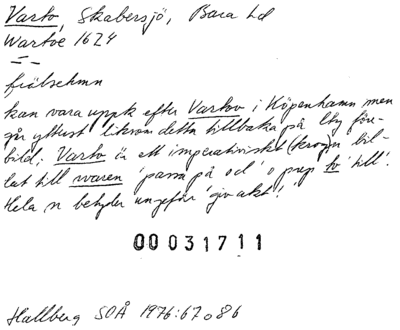 Varto, Skabersjö, Bara hd
Wartoe 1624
fiälsehmn
kan vara uppk efter Vartov i Köpenhamn men
går ytterst liksom detta tillbaka på lty före-
bild; Varto är ett imperativiskt (krog)n bil-
dat till waren 'passa på, och' o prep to 'till'.
Hela n betyder ungefär 'giv akt!'
00031711
Hallberg SOÅ 1976:67 o 86